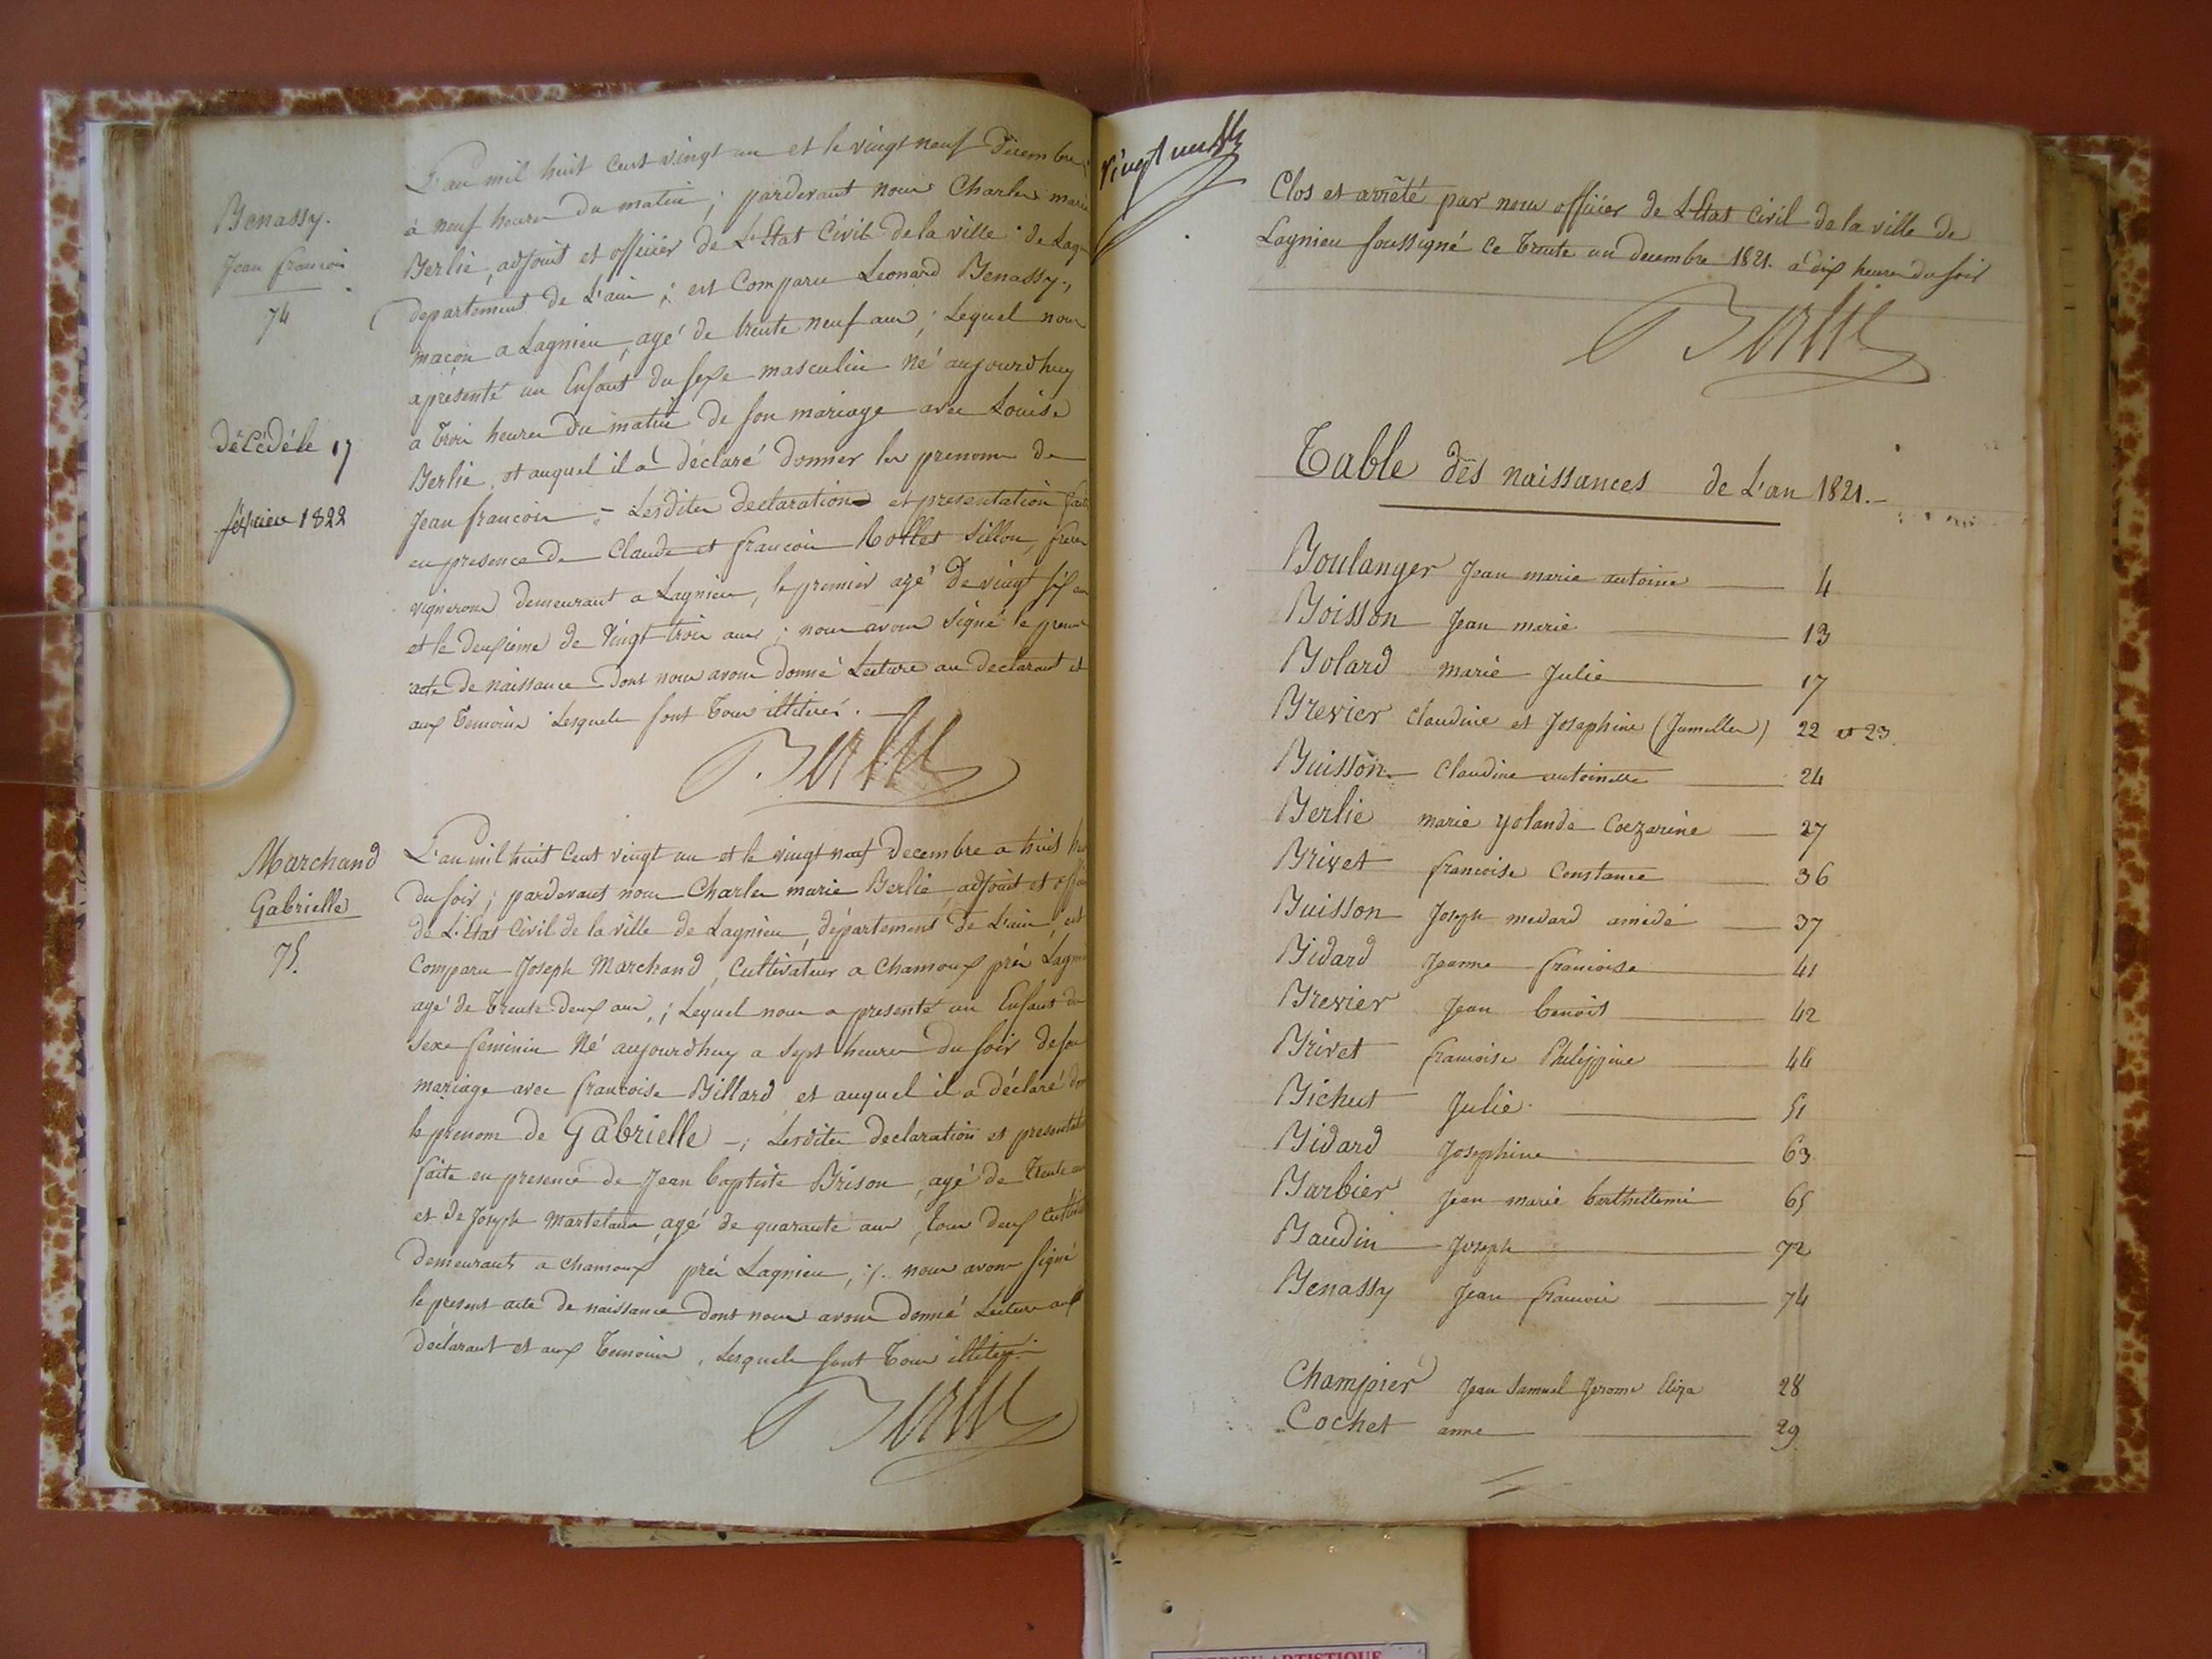 Benassy.
Jean francois
74
Dëcédé le 17
février 1822
L'an mil huit cent vingt un et le vingt neuf décembre
à neuf heures du matin ; pardevant nous Charles marie
Berlie, adjoint et officier de L'Etat Civil de la ville de Lagn
departement de L'ain ; est Comparu Leonard Benassy,
maçon a Lagnieu, agé de trente neuf ans ; Lequel nous
a présenté un Enfant du sexe masculin né aujourdhuy
a trois heures du matin de son mariage avec Louise
Berlie, et auquel il a déclaré donner les prenoms de
Jean francois - Lesdites declarations et presentation faite
en presence de Claude et francois Rollet Sillon, freres
vignerons demeurant a Lagnieu, le premier agé de vingt six ans
et le deuxieme de vingt trois ans ; nous avons signé le present
acte de naissance dont nous avons donné Lecture au declarant et
aux temoins Lesquels sont tous illitérés.
Berlie
Marchand
Gabrielle
75.
L'an mil huit Cent vingt un et le vingt neuf decembre a huit heu
du soir ; pardevant nous Charles marie Berlie, adjoint et offi
de L'Etat Civil de la ville de Lagnieu, département de L'ain, est
Comparu Joseph Marchand, Cultivateur a Chamoux près Lagni
agé de trente deux ans, ; Lequel nous a presenté un Enfant du
sexe feminin né aujourdhuy a sept heures du soir de son
mariage avec francoise Billard et auquel il a déclaré don
le prenom de Gabrielle - ; Lesdites declaration et presentati
faite en presence de Jean baptiste Brison, agé de trente ans
et de Joseph Martelain, agé de quarante ans, tous deux Cultiv
demeurants a Chamoux près Lagnieu, ; nous avons signé
le present acte de naissance dont nous avons donné Lecture aux
déclarant et aux temoins, Lesquels sont tous illitérés.
Berlie
Clos et arrêté par nous officier de L'Etat Civil de la ville de
Lagnieu soussigné ce trente un decembre 1821. à dix heures du soir
Berlie
Table des naissances de L'an 1821.
Boulanger Jean marie antoine 4
Boisson Jean marie 13
Bolard marie Julie 17
Brevier Claudine et Josephine (Jumelles) 22 et 23
Buisson Claudine antoinette 24
Berlie marie yolande Coezarine 27
Brivet francoise Constance 36
Buisson Joseph medard amédé 37
Bidard Jeanne francoise 41
Brevier Jean benoit 42
Brivet francoise Philippine 44
Bichut Julie 51
Bidard Josephine 63
Barbier Jean marie berthellemi 65
Baudin Joseph 72
Benassy Jean francois 74
Champier Jean Samuel Jerome Eliza 28
Cochet anne 29